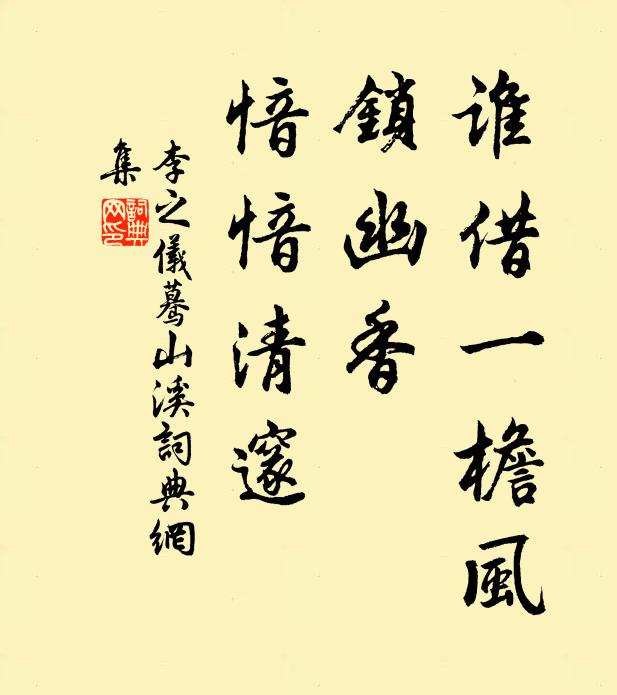 谁借一檐風
鎖幽香
愔愔清邃
李之儀蓦山溪詞典網
集
詞典
网印